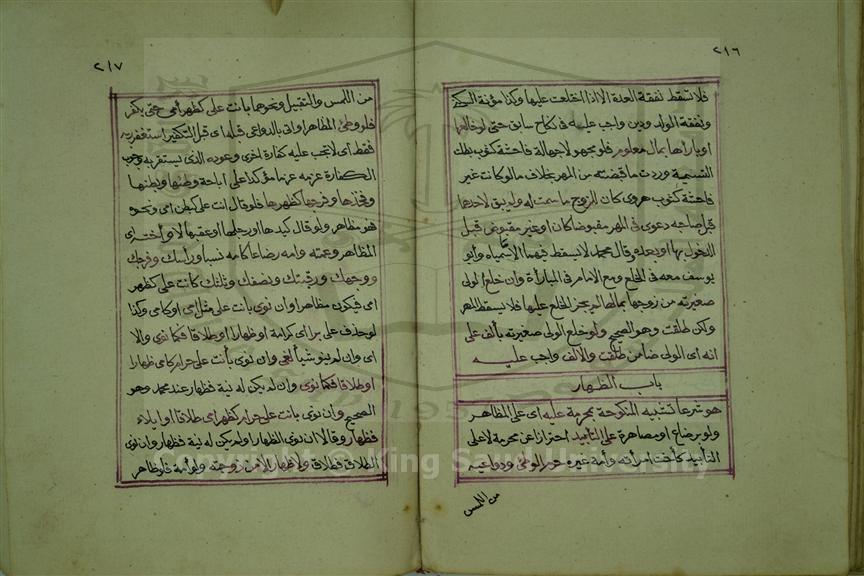 ٢١٦
فلا تسقط نفقة العدة الا اذا اختلعت عليها وكذا مؤنة السكنى
ونفقة الولد ودين واجب عليه في نكاح سابق حتى لو خالعها
او باراها بمال معلوم فلو مجهولا جهالة فاحشة كثوب بطلت
التسمية وردت ما قبضته من المهر بخلاف مالو كانت غير
فاحشة كثوب هروى كان للزوج ما سمت له ولم يبق لاحدهما
قبل صاحبه دعوى في المهر مقبوضا كان او غير مقبوض قبل
الدخول بها او بعده وقال محمد لا يسقط فيهما الا ما سمياه وابو
يوسف معه في الخلع ومع الامام في المبارأة وان خلع الولى
صغيرته من زوجها بمالها لم يجز الخلع عليها فلا يسقط المهر
ولكن طلقت وهو الصحيح ولو خلع الولى صغيرته بألف على
انه اى الولى ضامن طلقت والالف واجب عليه
باب الظهار
هو شرعا تشبيه المنكوحة بمحرمة عليه اى على المظاهر
ولو برضاع او مصاهرة على التأبيد احترازا عن محرمة لا على
التأبيد كأخت امرأته وأمة غيره حرم الوطئ ودواعيه
من اللمس
٢١٧
من اللمس والتقبيل ونحوها بانت على كظهر امى حتى يكفر
فلو وطئ المظاهر او اتى بالدواعى قبله اى قبل التكفير استغفر ربه
فقط اى لا يجب عليه كفارة اخرى وعوده الذى يستقر به وجوب
الكفارة عزمه عزما مؤكدا على اباحة وطئها وبطنها
وفخذها وفرجها كظهرها فلو قال انت على كبطن امى ونحوه
فهو مظاهر ولو قال كيدها ورجلها او عقبها لا وأخته اى
المظاهر وعمته وامه رضاعا كامه نسبا ورأسك وفرجك
ووجهك ورقبتك ونصفك وثلثك كانت على كظهر
امى فيكون مظاهرا وان نوى بانت على مثل امى او كامى وكذا
لو حذف على برا اى كرامة او ظهارا او طلاقا فكما نوى والا
اى وان لم ينو شيأ لغى وان نوى بأنت على حرام كامى ظهارا
او طلاقا فكما نوى وان لم يكن له نية فظهار عند محمد وهو
الصحيح وان نوى بانت على حرام كظهر امى طلاقا او ايلاء
فظهار وقالا ان نوى الظهار او لم يكن له نية فظهار وان نوى
الطلاق فطلاق ولا ظهار الا من زوجته ولو أمة فلو ظاهر